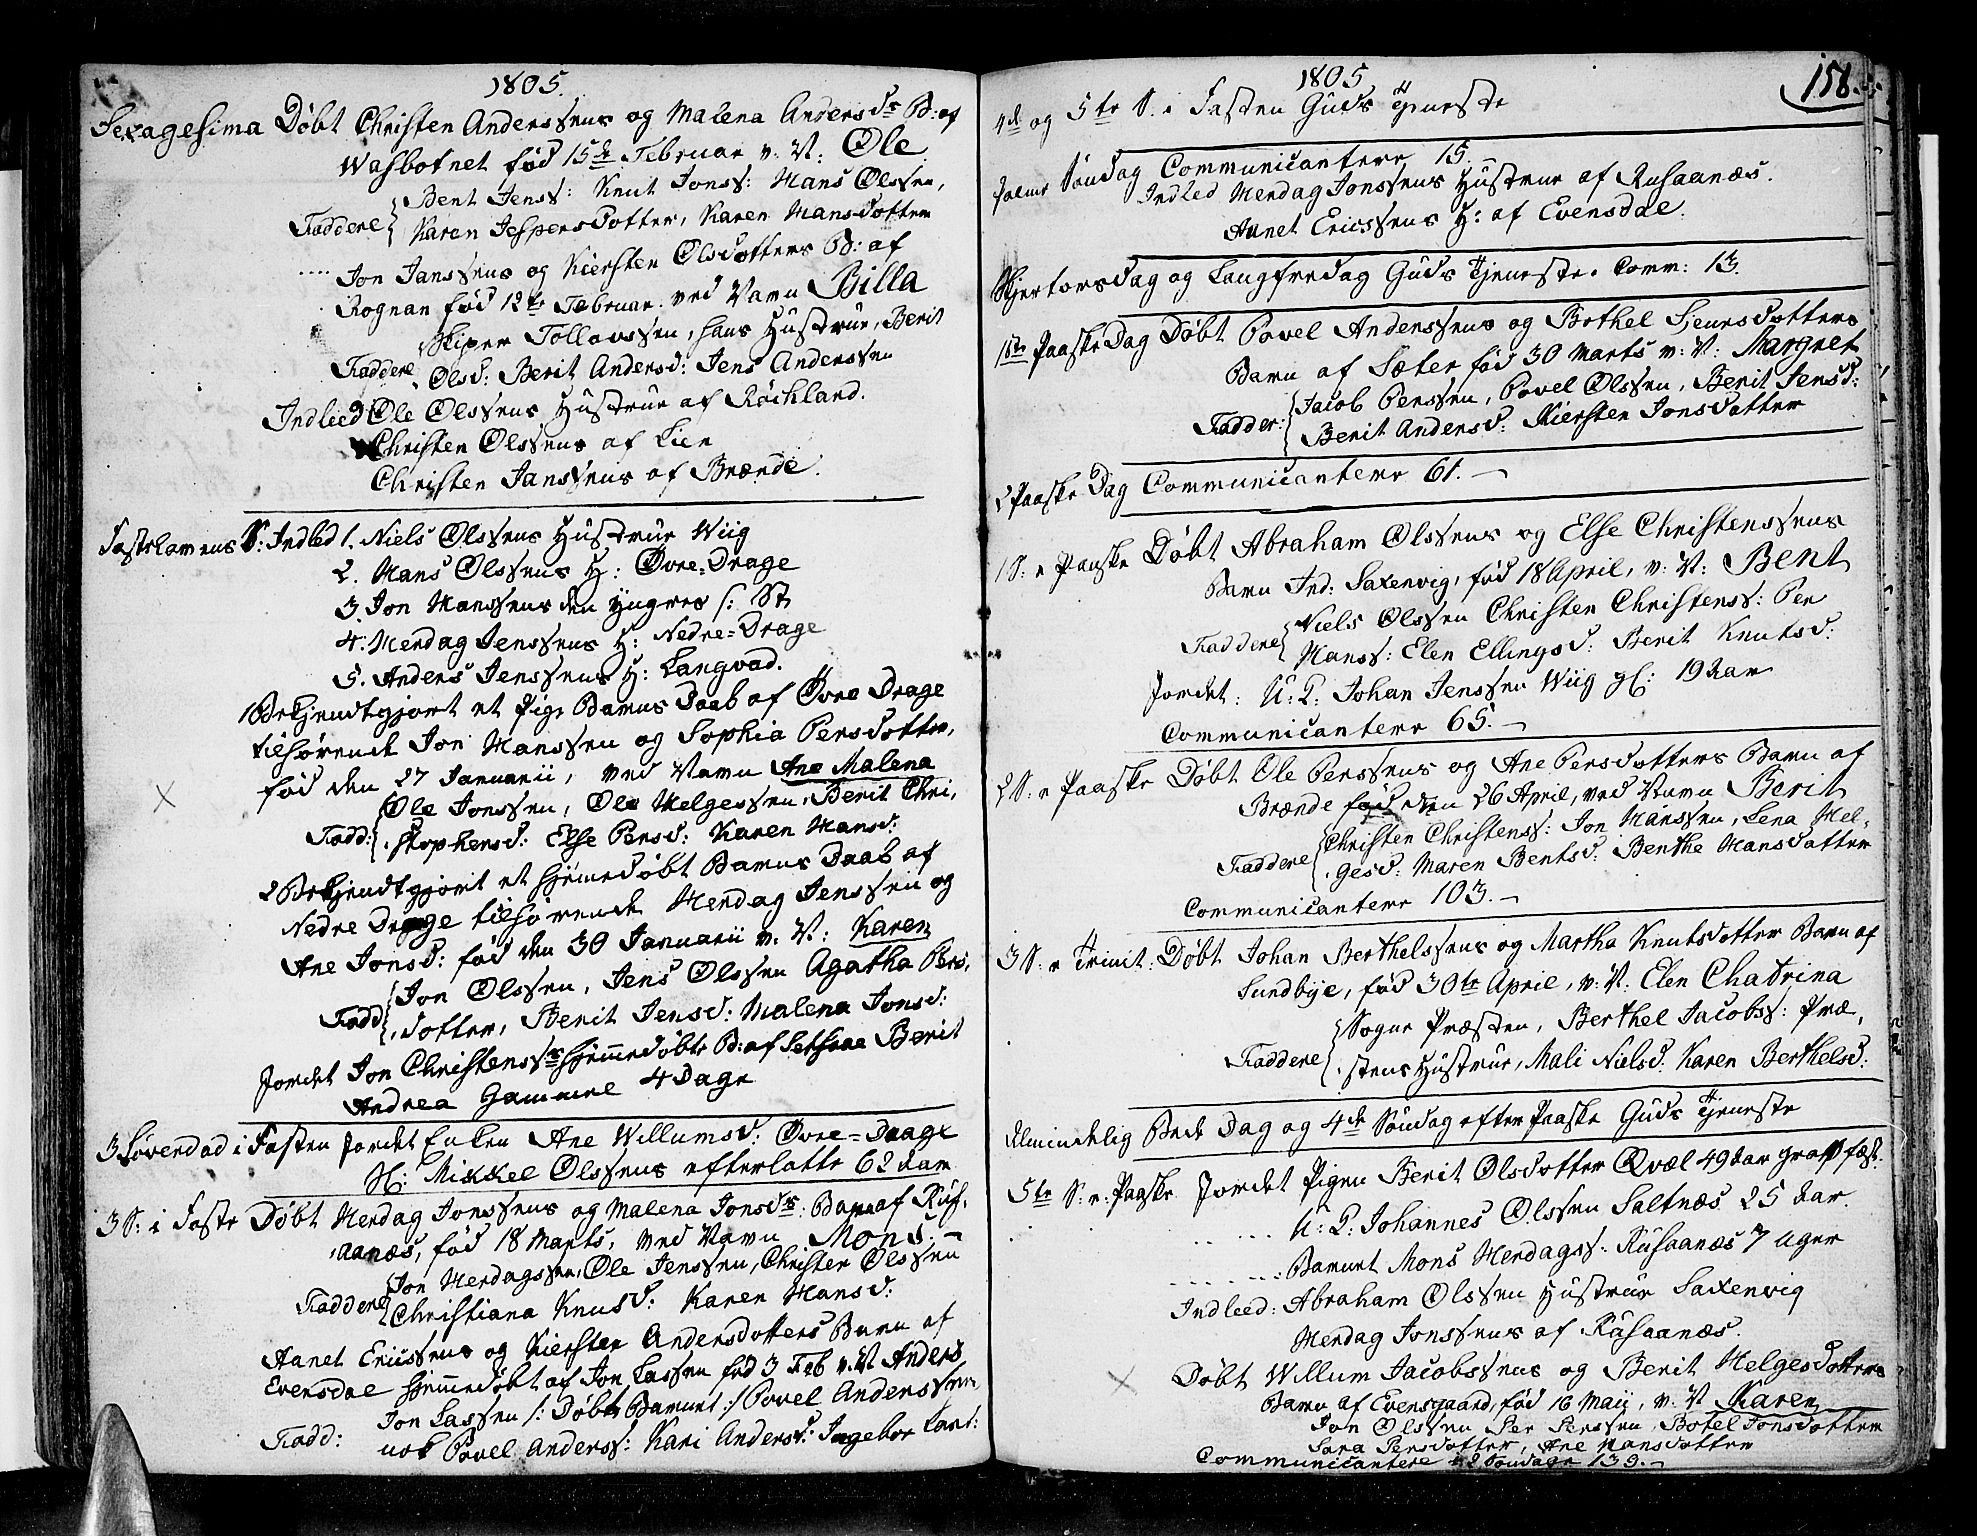 1805.
Sexagesima Døbt Christen Anderssens og Malena Andersdr B: af
Wasbotnet fød 15de Februar v: N: Ole
Bent Jenss: Knut Jonss: Hans Olssen,
Faddere Karen Jespersdotter, Karen Hansdotter
.... Jon Janssens og Kiersten Olsdotters B: af
Rognan fød 12te Februar. ved Navn Billa
Skiper Tollovssen, hans Hustrue, Berit
Faddere Olsd: Berit Andersd: Jens Anderssen
Indleed Ole Olssens Hustrue af Røchland.
Christen Olssens af Lier
Christen Janssens af Brænde.
Fastelavens S: Indled 1. Niels Olssens Hustrue Wiig
2. Hans Olssens H: Øvre-Drage
3. Jon Hanssens den Yngres /: St
4. Herdag Jenssens H: Nedre-Drage
5. Anders Jenssens H: Langvad.
1 Bekjendtgjort et Pige Barns Daab af Øvre Drage
tilhørende Jon Hanssen og Sophia Persdotter,
fød den 27 Januarii, ved Navn Ane Malena
Ole Jonssen, Ole Helgessen, Berit Chri,
Fadd: stophersd: Else Persd: Karen Hansd:
2 Bekjendtgjort et hjemedøbt Barns Daab af
Nedre Drage tilhørende Herdag Jenssen og
Ane Jonsd: fød den 30 Januarii v. N: Karen
Jon Olssen, Jens Olssen Agatha Pers,
Fadd dotter, Berit Jensd: Malena Jonsd:
Jordet Jon Christenss hjemmedøbte B: af Setsaae Berit
Andrea Gammel 4 Dage
3 Løverdad i Fasten Jordet Enken Ane Willumsd: Øvre-Drage
Sl: Mikkel Olssens efterlatte 62 Aar
3 S: i Faste Døbt Herdag Jonssens og Malena Jonsdr: Barn af Rus,
aanæs, fød 18 Marts, ved Navn Mons.
Jon Herdagssen, Ole Jenssen, Christen Olssen
Faddere Christiana Knusd: Karen Hansd:
Aanet Ericssens og Kiersten Andersdotters Barn af
Evensdal hjemmedøbt af Jon Lassen fød 3 Feb v: N Anders
Jon Lassen /: Døbte Barnet :/ Povel Anderssen,
Fadd: nok Povel Anderss: Kari Andersd: Ingebor Lars:
1805
158.
4de og 5te S. i Fasten Guds Tjeneste
Palme Søndag Communicantere 15.
Indled Herdag Jonssens Hustrue af Rusaanæs.
Aanet Ericssens H: af Evensdal.
Skjertorsdag og Langfredag Guds Tjeneste. Comm: 13.
1ste Paaske Dag Døbt Povel Anderssens og Bothel Siversdotters
Barn af Sæter fød 30 Marts v: N: Margret
Jacob Perssen, Povel Olssen, Berit Jensd:
Fadder: Berit Andersd: Kiersten Jonsdotter
2 Paaske Dag Communicantere 61.
1 S: e Paaske Døbt Abraham Olssens og Else Christenssens
Barn Ind: Saxenvig, fød 18 April, v: N: Bent
Niels Olssen Christen Christenss: Per
Faddere Hanss: Elen Ellingsd: Berit Knutsd:
Jordet: U: P. Johan Jenssen Wiig gl: 19 Aar
Communicantere 65.
2 S: e Paaske Døbt Ole Perssens og Ane Persdotters Barn af
Brænde fød den 26 April, ved Navn Berit
Christen Christenss: Jon Hanssen, Lena Hel,
Faddere gesd: Maren Bentsd: Benthe Hansdotter
Communicantere 103.
3 S: e Trinit: Døbt Johan Berthelssens og Martha Knutsdotter Barn af
Sundbye, fød 30te April, v: N. Elen Chatrina
Sogne Præsten, Berthel Jacobss: Præ,
Faddere stens Hustrue, Mali Nielsd: Karen Berthelsd:
Almindelig Bede Dag og 4de Søndag efter Paaske Guds Tjeneste
5te S: e: Paaske Jordet Pigen Berit Olsdotter Qvæl 49 Aar Graffæst.
..... U: P. Johannes Olssen Saltnæs 25 Aar.
....... Barnet Mons Herdagss: Rusaanæs 7 Uger
Indleed: Abraham Olssen Hustrue Saxenvig
Herdag Jonssens af Rusaanæs.
Døbt Willum Jacobssens og Berit Helgesdotters
Barn af Evensgaard, fød 16 Maij, v: N Karen
Jon Olssen Per Perssen, Botel Jonsdotter
Sara Persdotter, Ane Hansdotter
Communicantere 2 Søndage 139.